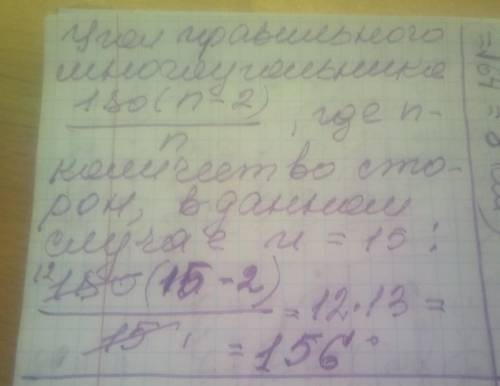 Угол правильного
многоугольника
180(n-2)/n, где n-
количество сто-
рон, в данном
случае n = 15:
12 180(15-2)/15 = 12·13 =
= 156°